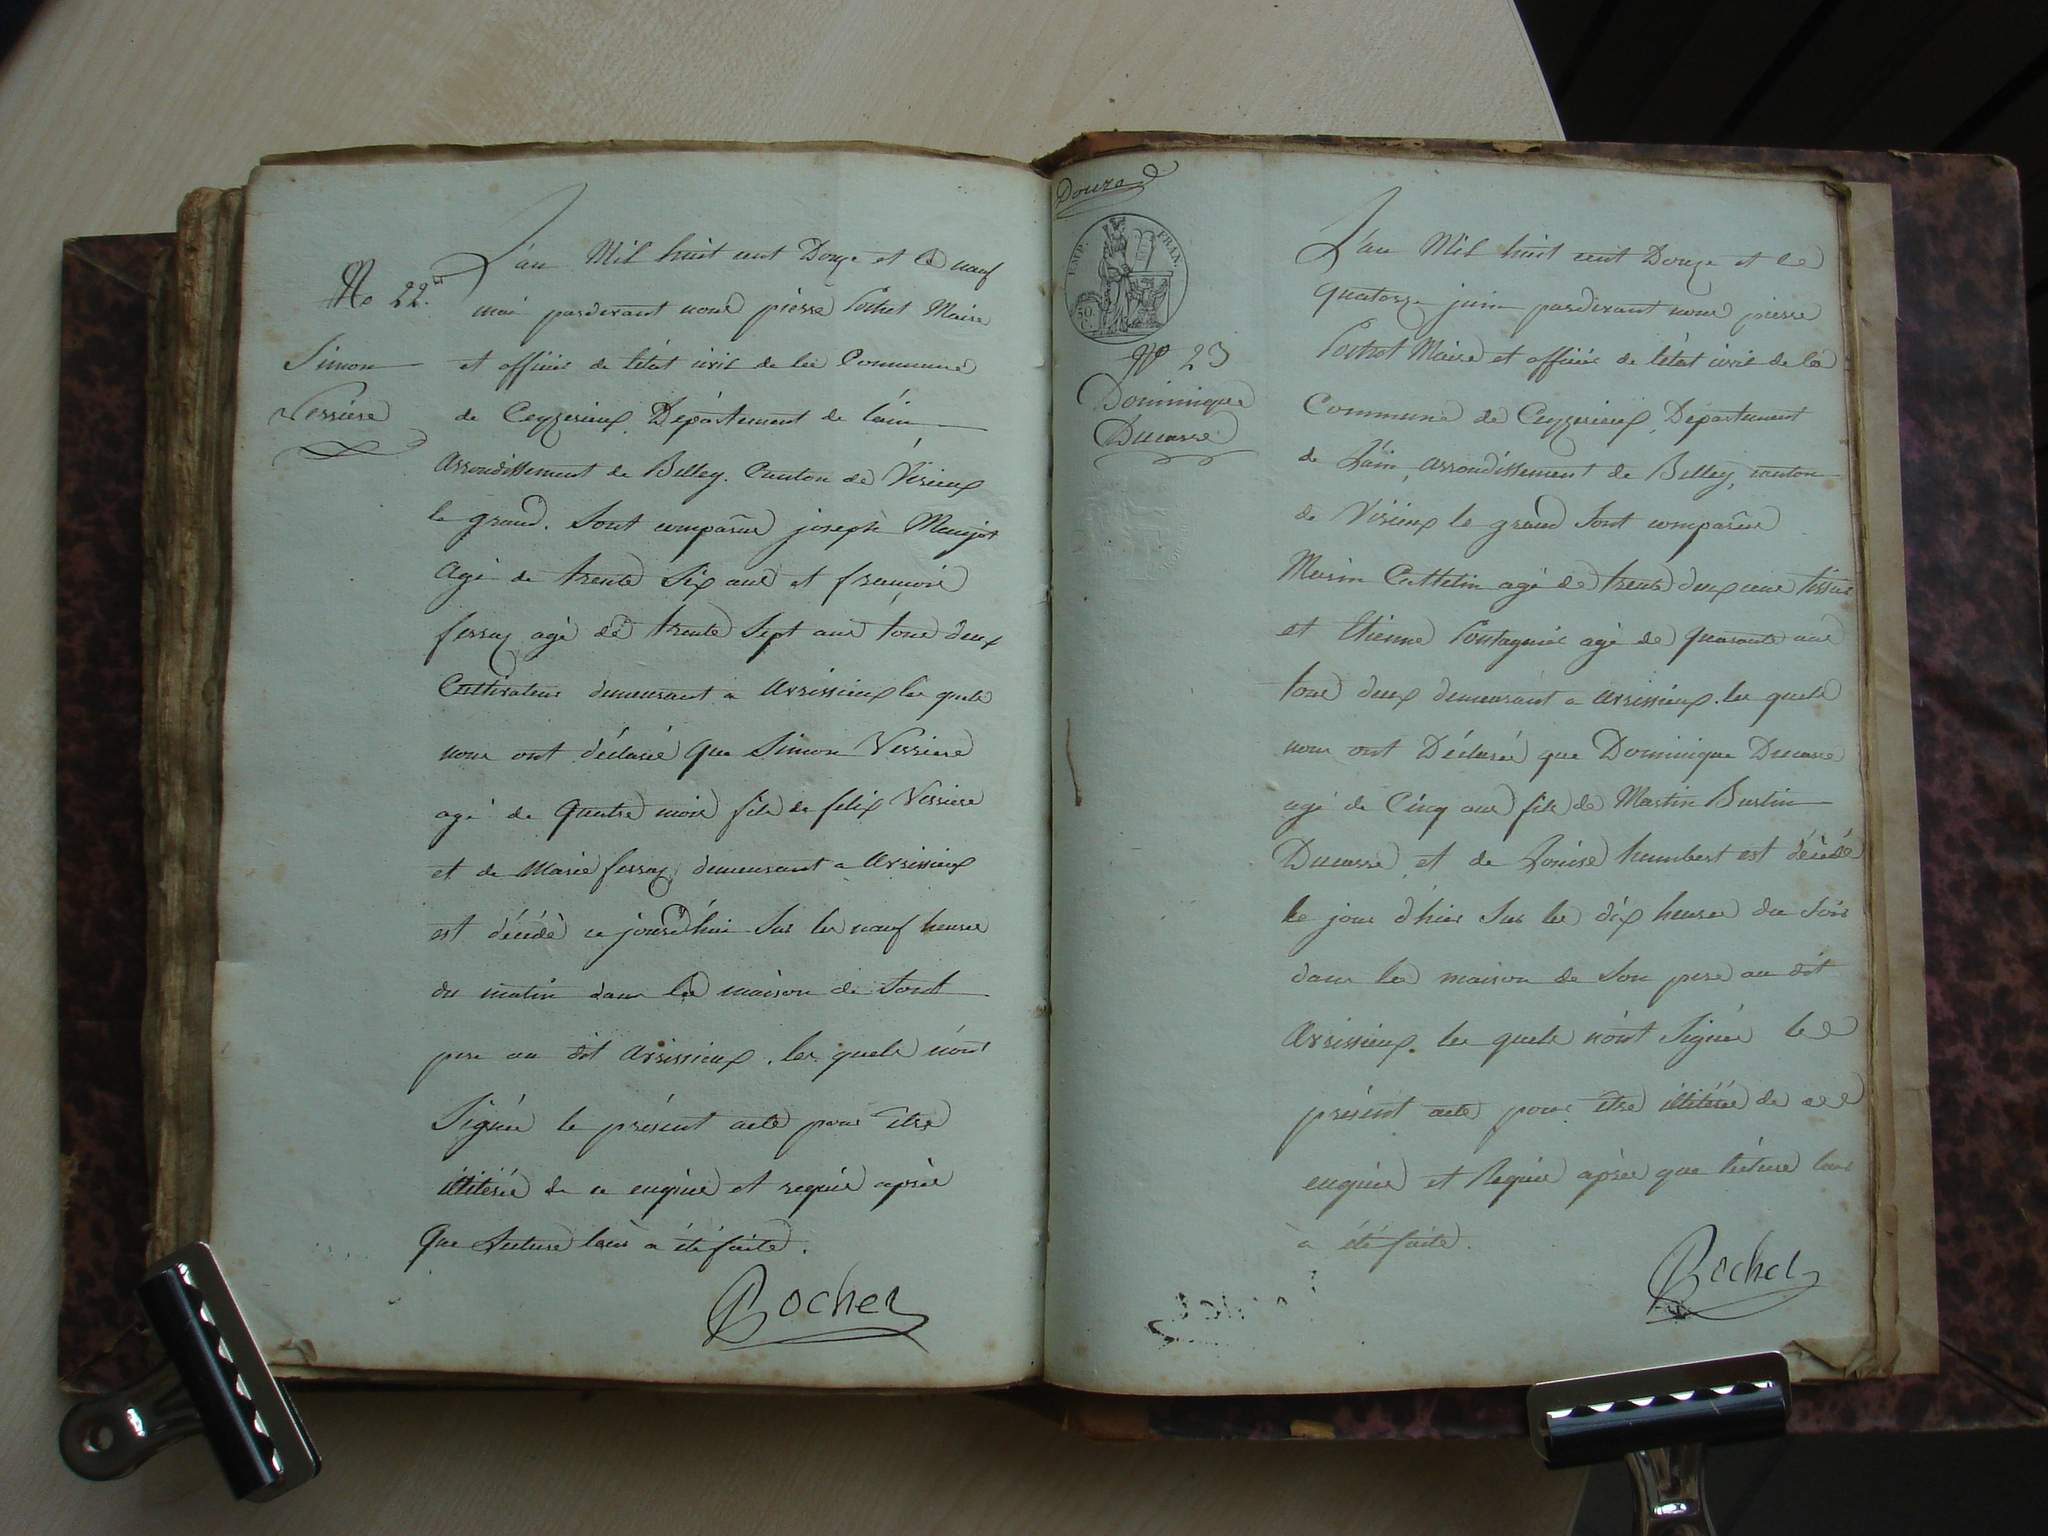 No 22.
Simon
Verriere
L'an Mil huit cent Douze et le neuf
mai pardevant nous pierre Pochet Maire
et officier de l'état civil de la Commune
de Ceyzerieux Département de l'ain
Arrondissement de Belley. Canton de Virieux
le grand. Sont comparus joseph
agé de trente Six ans et francois
ferraz agé de trente Sept ans tous deux
Cultivateur demeurant a avrissieux les quels
nous ont déclaré que Simon Verriere
agé de quatre mois fils de felix Verriere
et de Marie ferraz demeurant a avrissieux
est décédé ce jourd'hui Sur les neuf heures
du matin dans la maison de Sont
pere au dit avrissieux. les quels n'ont
Signée le présent acte pour être
illitérée de ce enquiee et requiee après
que Lecture leur a été faite.
Pochet
Douze
EMP. FRAN.
50 C.
No 23
Dominique
Ducarre
L'an Mil huit cent Douze et le
quatorze juin pardevant nous pierre
Pochet Maire et officier de l'état civil de la
Commune de Ceyzerieux, Département
de L'ain, arrondissement de Belley, canton
de Virieux le grand Sont comparus
Marin Cuttelin agé de trente deux ans tissier
et Etienne Poutagnier agé de quarante ans
tous deux demeurant a avrissieux. les quels
nous ont Déclaré que Dominique Ducarre
agé de Cinq ans fils de Martin Burtin
Ducarre et de Louise humbert est décédé
le jour d'hier Sur les dix heures du Soir
dans la maison de Son pere au dit
avrissieux. les quels n'ont Signée le
présent acte pour être illitérée de ce
enquiee et Requiee après que lecture leur
à été faite.
Pochet